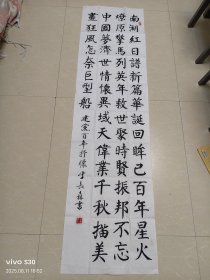 南湖紅日譜新篇華誕回眸已百年星火
燎原擎馬列英年救世聚時賢振邦不忘
中國夢濟世情懷異域天偉業千秋描美
畫狂風怎奈巨型船 建黨百年抒懷
vivo S30